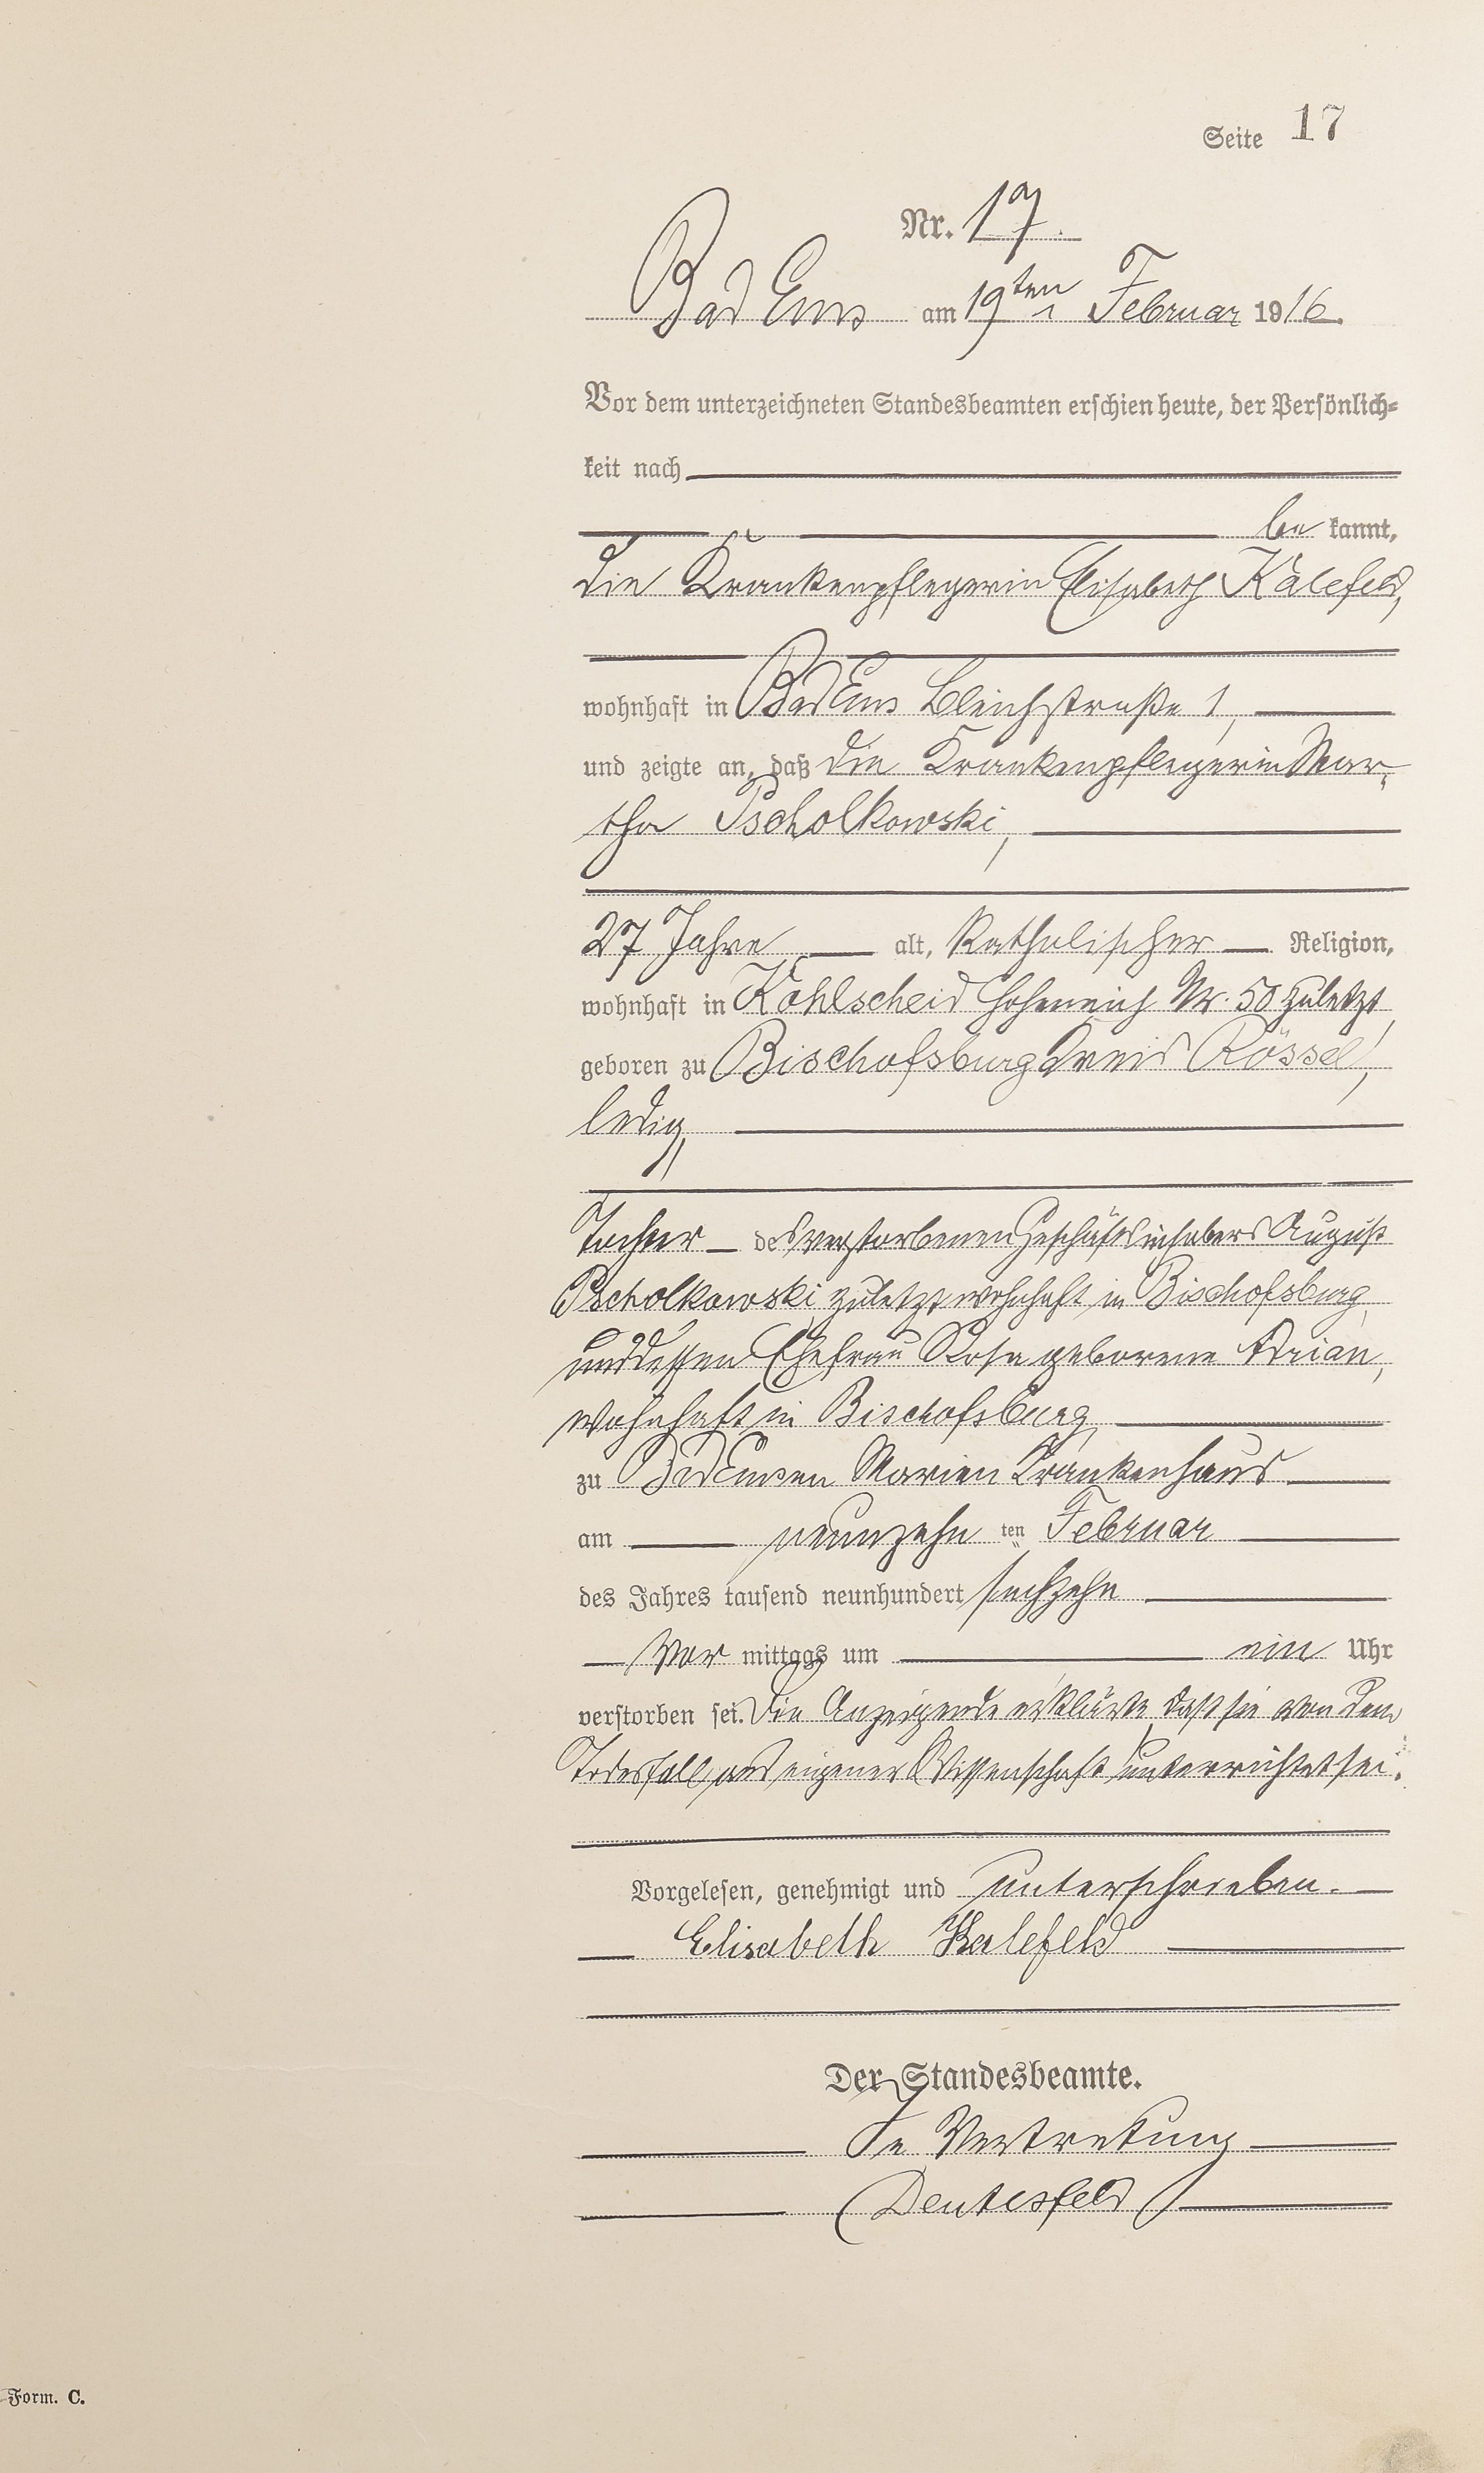 Seite 17
Nr. 17.
Bad Ems am 19ten Februar 1916.
Vor dem unterzeichneten Standesbeamten erschien heute, der Persönlich-
keit nach
be kannt,
die Krankenpflegerin Elisabeth Kalefeld,
wohnhaft in Bad Ems Bleichstraße 1,
und zeigte an, daß die Krankenpflegerin Mar-
tha Pscholkowski,
27 Jahre alt, katholischer Religion,
wohnhaft in Kohlscheid Hoheneich Nr. 50 zuletzt
geboren zu Bischofsburg Kreis Rössel,
ledig,
Tochter des verstorbenen Geschäftsinhabers August
Pscholkowski zuletzt wohnhaft in Bischofsburg
und dessen Ehefrau Rosa geborene Adrian,
wohnhaft in Bischofsburg
zu Bad Ems Marien Krankenhaus
am neunzehn ten Februar
des Jahres tausend neunhundert sechzehn
Vor mittags um ein Uhr
verstorben sei. Die Anzeigende erklärte, daß sie von dem
Todesfall aus eigener Wissenschaft unterrichtet sei.
Vorgelesen, genehmigt und unterschrieben.
Elisabeth Kalefeld
Der Standesbeamte.
In Vertretung
Deutesfeld
Form. C.